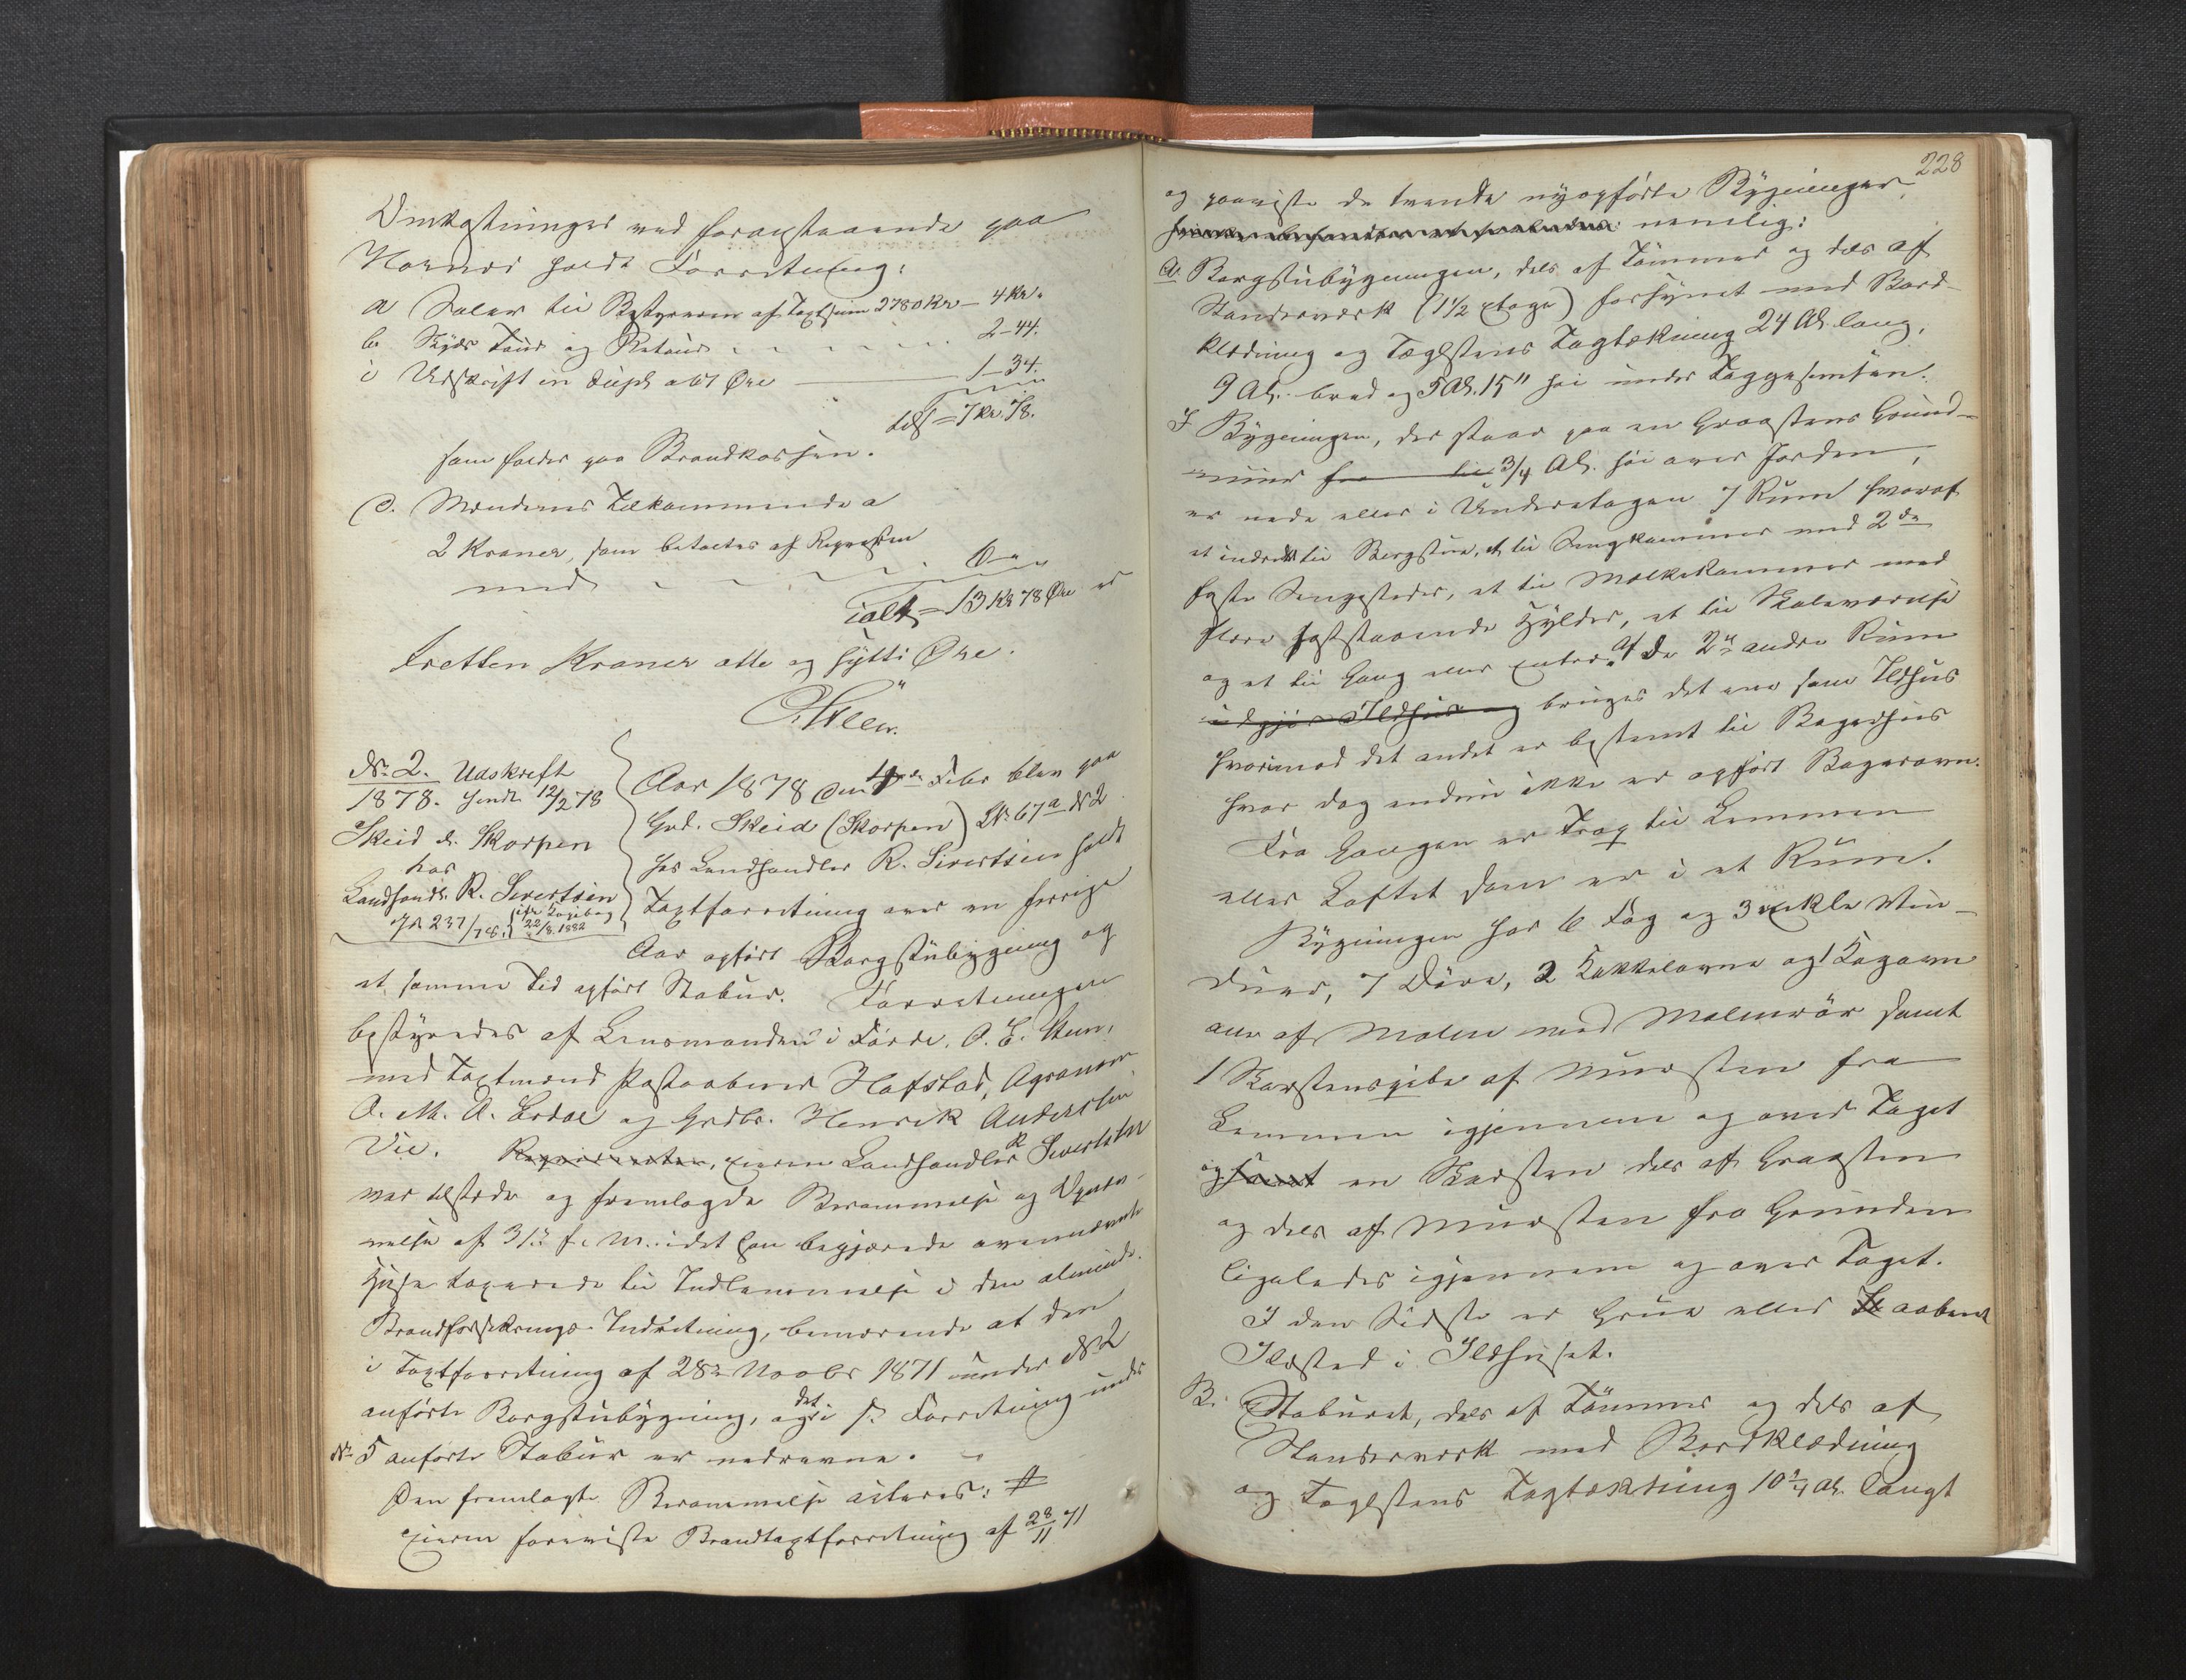 Omkostninger ved foranstaaende paa
Hornnes holdt Forretning:
a Salær til Bestyreren af Taxtsum 2780 Kr — 4 Kr.
b Skyds Tour og Retour 2-44.
c Udskrift in dupl. a 67 Øre 1-34.
tils = 7 Kr 78.
som falder paa Brandkassen.
d. Mændenes Tilkommende a
2 Kroner, som betaltes af Requirenten
med 6 "
ialt = 13 Kr 78 Øre er
tretten Kroner otte og sytti Øre.
O. Steen.
No 2. Udskrift
1878. sendt 12/2 78
Skeid el. Skorpen
hos
Landhandl. R. Sivertsen
J.N. 237/78. 22/8. 1882
Aar 1878 den Febr blev paa
Grd. Skeid (Skorpen) LNo 67a No 2
hos Landhandler R. Sivertsen holdt
Taxtforretning over en forrige
Aar opført Borgstubygning og
et samme Tid opført Stabur. Forretningen
bestyredes af Lensmanden i Førde, O. E. Steen,
med Taxtmænd Postaabner Hafstad, Agronom
O. M. A. Erdal og Grdbr. Henrik Andersen
Vie. Requirenten, Eieren Landhandler R Sivertsen
var tilstede og fremlagde Berammelse og Opnæv-
nelse af 31te f. M. idet han begjærede ovennævnte
Huse taxerede til Indlemmelse i den almind.
Brandforsikrings-Indretning, bemærkende at den
i Taxtforretning af 28de Novbr 1871 under No 2
anførte Borgstubygning, og det i s. Forretning under
No 5 anførte Stabur er nedrevne.
Den fremlagte Berammelse acteres: #
Eieren foreviste Brandtaxtforretning af 28/11 71
228
og paaviste de tvende nyopførte Bygninger,
nemlig:
A. Borgstubygningen, dels af Tømmer og dels af
Stenderverk (1½ Etage) forsynet med Bord-
klædning og Tæglstens Tagtækning 24 Al. lang,
9 Al. bred og 5 Al. 15" høi under Taggesimsen.
I Bygningen, der staar paa en Graastens Grund-
muur fra til ¾ Al. høi over Jorden,
er nede eller i Underetagen 7 Rum hvoraf
et indredet til Borgstue, et til Sengkammer med 2de
faste Sengesteder, et til Melkekammer med
flere faststaaende Hylder, et til Skoleværelse
og et til Gang eller Entre. Af de 2de andre Rum
udgjør Ildhus og bruges det ene som Ildhus
hvorimod det andet er bestemt til Bagerhus
hvor dog endnu ikke er opført Bagerovn.
Fra Gangen er Trap til Lemmen
eller Loftet som er i et Rum.
Bygningen har 6 Fag og 3 enkle Vin-
duer, 7 Døre, 2 Kakkelovne og 1 Kogovn
alle af Malm med Malmrør samt
1 Skorstenspibe af Muursten fra
Lemmen igjennem og over Taget
og samt en Skorsten dels af Graasten
og dels af Muursten fra Grunden
ligeledes igjennem og over Taget.
I den sidste er Grue eller aabent
Ildsted i Ildhuset.
B. Staburet, dels af Tømmer og dels af
Stenderverk med Bordklædning
og Taglstens Tagtækning 10¾ Al. langt